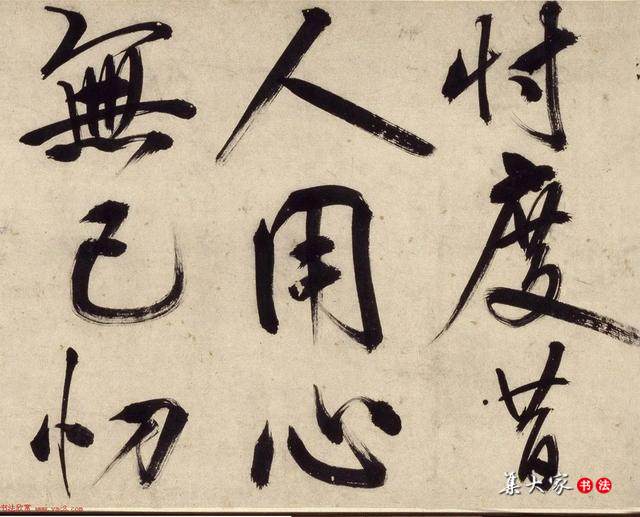 忖度昔
人用心
無已忉
集大家 书法
书法欣赏 www.yac8.com